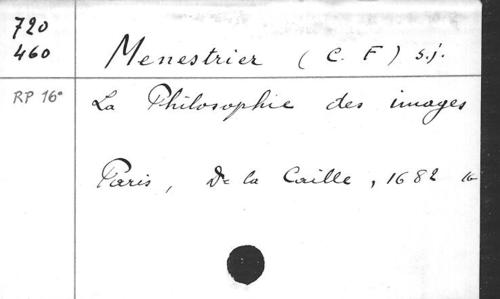 720
460
Menestrier (C. F) s.j.
RP 16°
La Philosophie des images
Paris, De la Caille, 1682 16